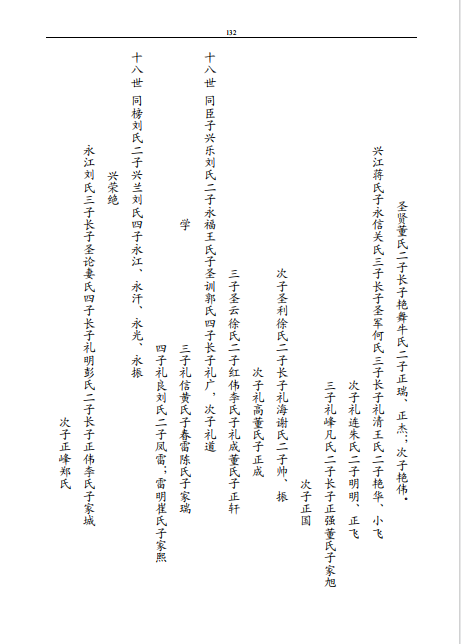 132
圣贤董氏二子长子艳舞牛氏二子正瑞、正杰；次子艳伟。
兴江蒋氏子永信关氏三子长子圣军何氏三子长子礼清王氏二子艳华、小飞
次子礼连朱氏二子明明、正飞
三子礼峰凡氏二子长子正强董氏子家旭
次子正国
次子圣利徐氏二子长子礼海谢氏二子帅、振
次子礼高董氏子正成
三子圣云徐氏二子红伟李氏子礼成董氏子正轩
十八世 同臣子兴乐刘氏二子永福王氏子圣训郭氏四子长子礼广，次子礼道
学
三子礼信黄氏子春雷陈氏子家瑞
四子礼良刘氏二子凤雷；雷明崔氏子家熙
十八世 同榜刘氏二子兴兰刘氏四子永江、永汗、永光、永振
兴荣绝
永江刘氏三子长子圣论妻氏四子长子礼明彭氏二子长子正伟李氏子家城
次子正峰郑氏